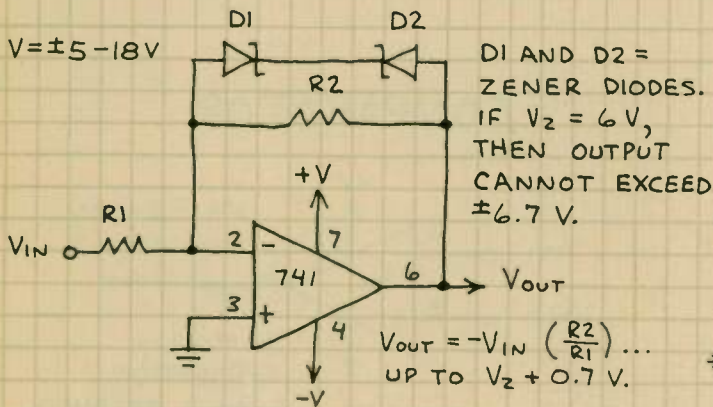 V = ±5-18 V
D1
D2
R2
D1 AND D2 =
ZENER DIODES.
IF VZ = 6 V,
THEN OUTPUT
CANNOT EXCEED
±6.7 V.
+V
R1
VIN
2
-
7
741
6
VOUT
3
+
4
-V
VOUT = -VIN (R2/R1) ...
UP TO VZ + 0.7 V.